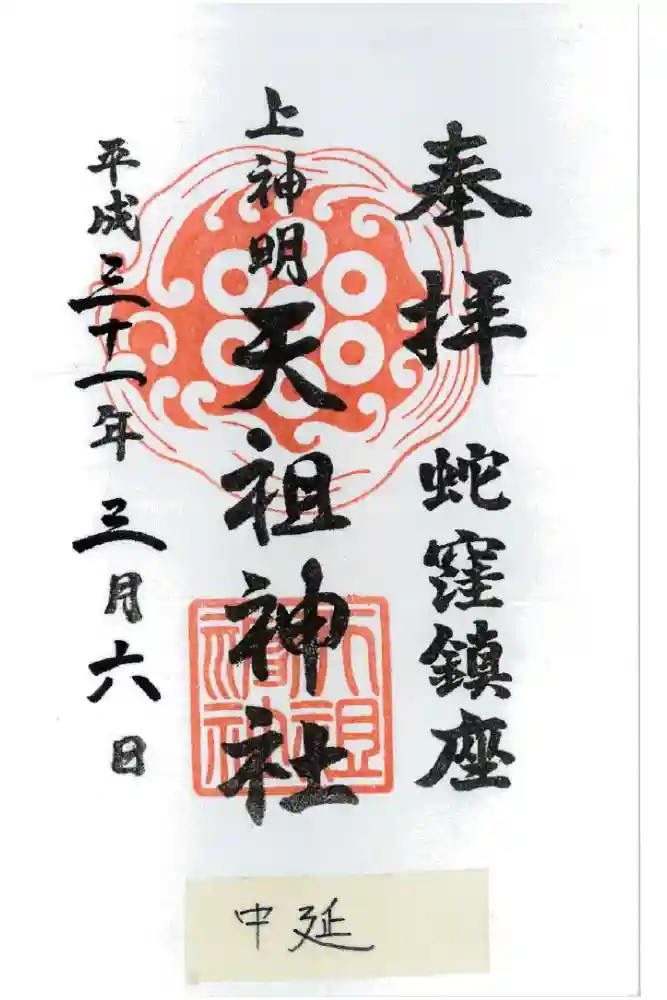 奉拝
蛇窪鎮座
上神明
天祖神社
平成三十一年三月六日
天祖
神社
中延